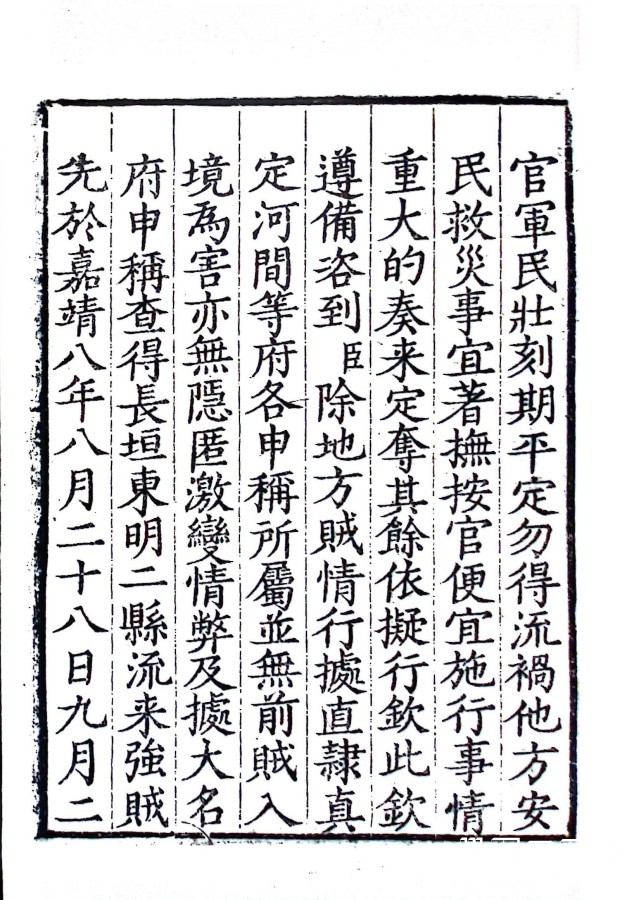 官軍民壯刻期平定勿得流禍他方安
民救災事宜著撫按官便宜施行事情
重大的奏来定奪其餘依擬行欽此欽
遵備咨到臣除地方賊情行據直隷真
定河間等府各申稱所屬並無前賊入
境為害亦無隠匿激變情弊及據大名
府申稱查得長垣東明二縣流来強賊
先於嘉靖八年八月二十八日九月二